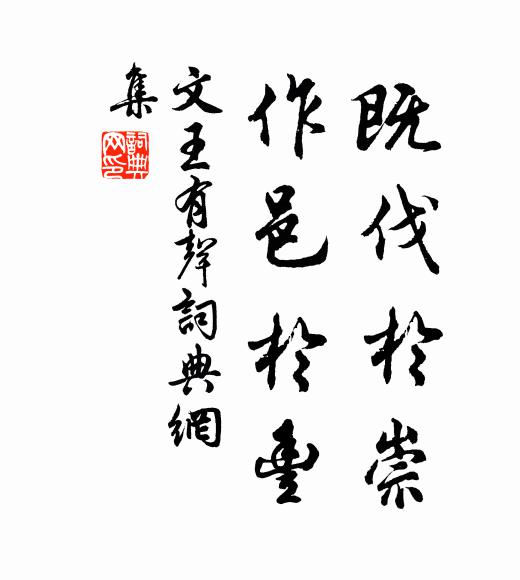 既伐於崇
作邑於豐
文王有聲詞典網
集
詞典
网印